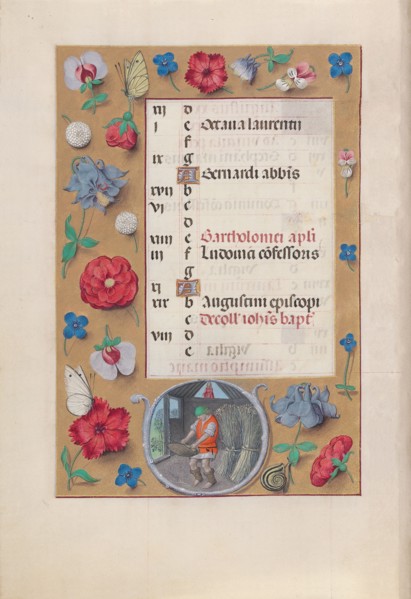 xij d
i e Octaua laurentii
f
ix g
A Bernardi abb̄is
xvij b
vj c
d
xiiij e Bartholomei apl̄i
iij f Ludouici cōfessoris
g
xj A
xix b Augustini episcopi
c Decoll ioh̄is bapt̄
viij d
e